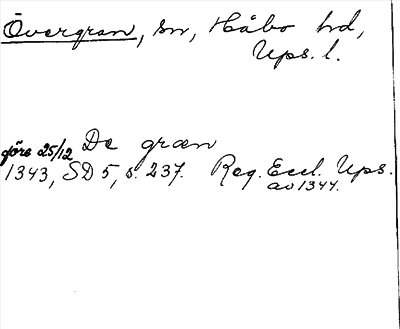 Övergran, sn, Håbo hd,
Ups. l.
före 25/12 De græn
1343, SD 5, s. 237. Reg. Eccl. Ups.
av 1344.